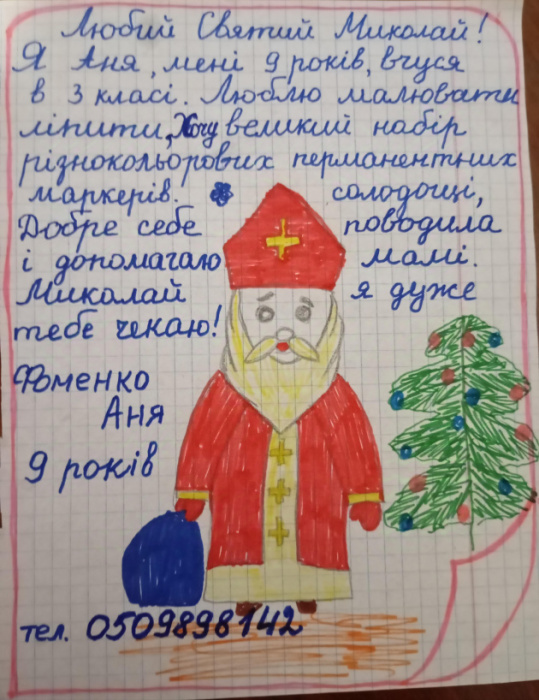 Любий Святий Миколай!
Я Аня, мені 9 років, вчуся
в 3 класі. Люблю малювати
ліпити, Хочу великий набір
різнокольорових перманентних
маркерів. солодощі,
Добре себе поводила
і допомагаю мамі.
Миколай я дуже
тебе чекаю!
Фоменко
Аня
9 років
тел. 0509898142